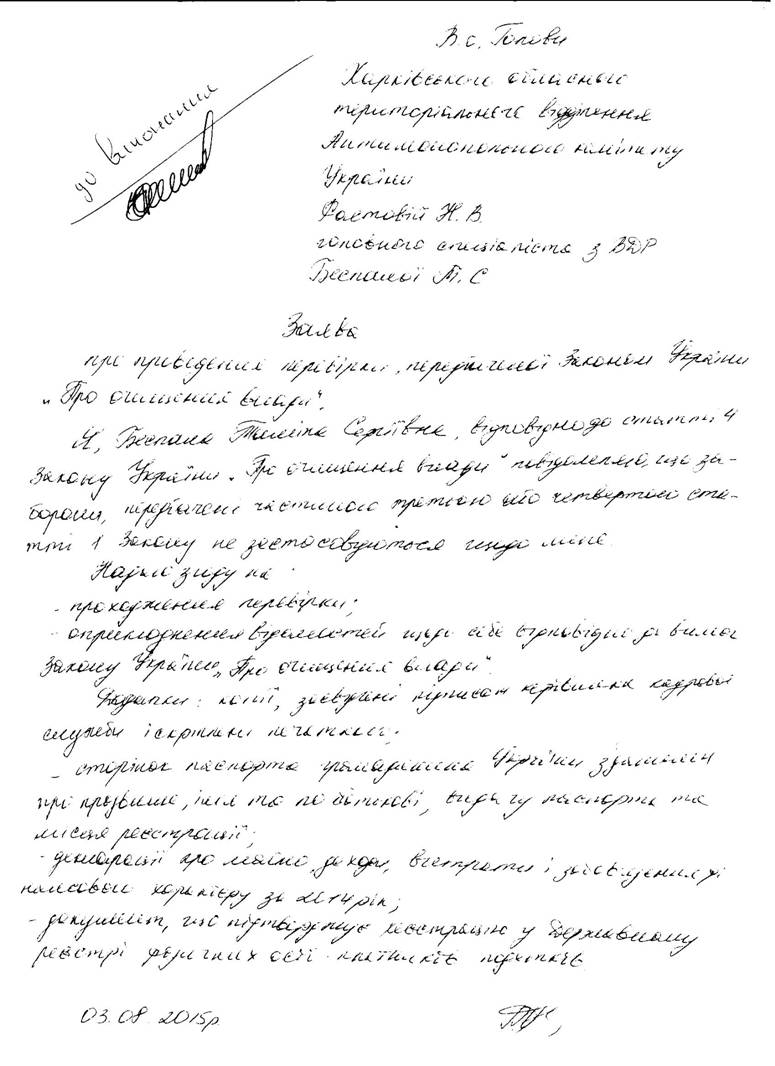 В.о. Голови
Харківського обласного
територіального відділення
Антимонопольного комітету
України
до виконання
Фастовій Н.В.
головного спеціаліста з ВДР
Беспалої Т.С
Заява
про проведення перевірки, передбаченої Законом України
„Про очищення влади".
Я, Беспала Сергіївна, відповідно до статті 4
Закону України „Про очищення влади" повідомляю, що за-
борони, передбачені частиною третьою або четвертою ста-
тті 1 Закону не застосовуються щодо мене.
Надаю згоду на:
- проходження перевірки;
- оприлюднення відомостей щодо себе відповідно до вимог
Закону України „Про очищення влади".
Додатки: копії, засвідчені підписом керівника кадрової
служби і скріплені печаткою:
- сторінок паспорта громадянина України з даними
про прізвище, ім'я та по батькові, видачу паспорта та
місце реєстрації;
- декларації про майно, доходи, витрати і зобов'язання
фінансового характеру за 2014 рік;
- документ, що підтверджує реєстрацію у Державному
реєстрі фізичних осіб платників податків.
03.08.2015р.